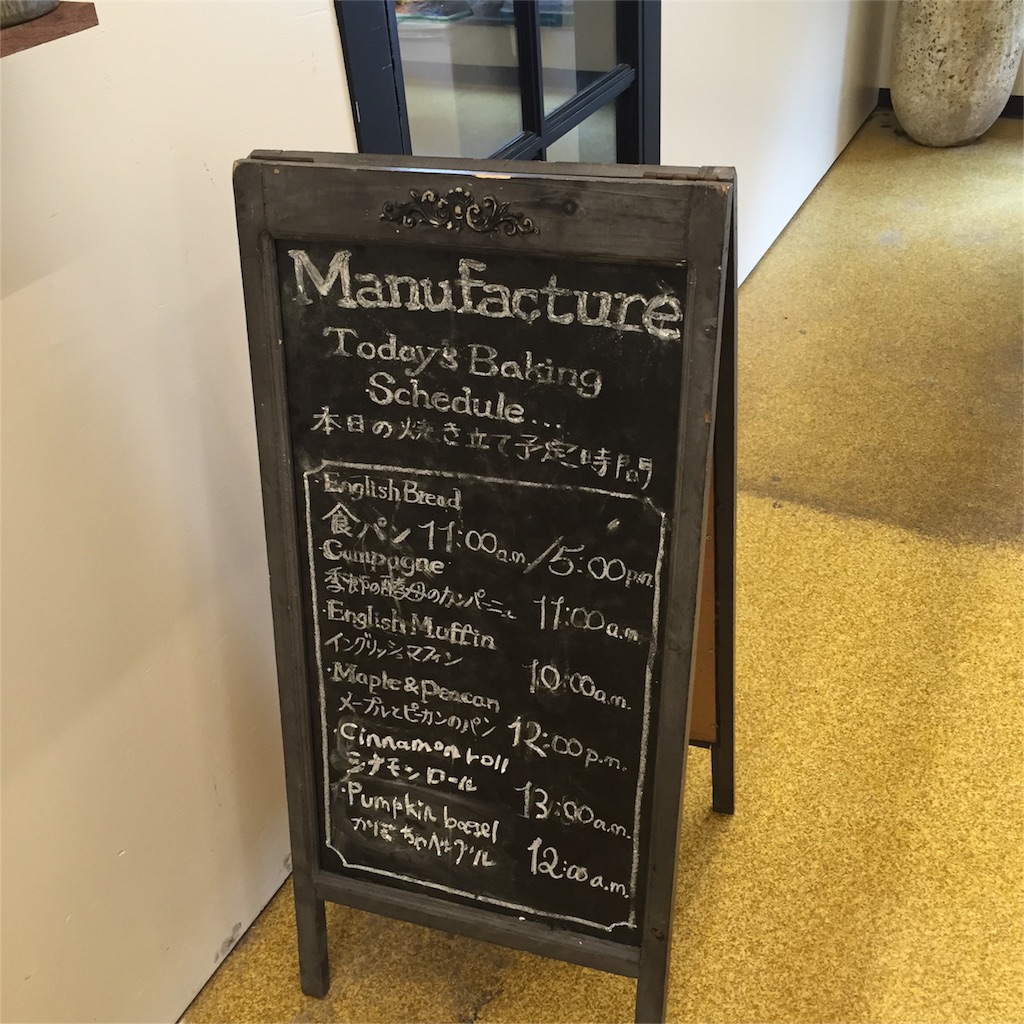 Manufacture
Today's Baking
Schedule...
本日の焼き立て予定時間
・English Bread
食パン 11:00a.m./5:00p.m.
・Campagne
季節の酵母のカンパーニュ 11:00a.m.
・English Muffin
イングリッシュマフィン 10:00a.m.
・Maple & peacan
メープルとピーカンのパン 12:00p.m.
・Cinnamon roll
シナモンロール 13:00a.m.
・Pumpkin bagel
かぼちゃベーグル 12:00a.m.